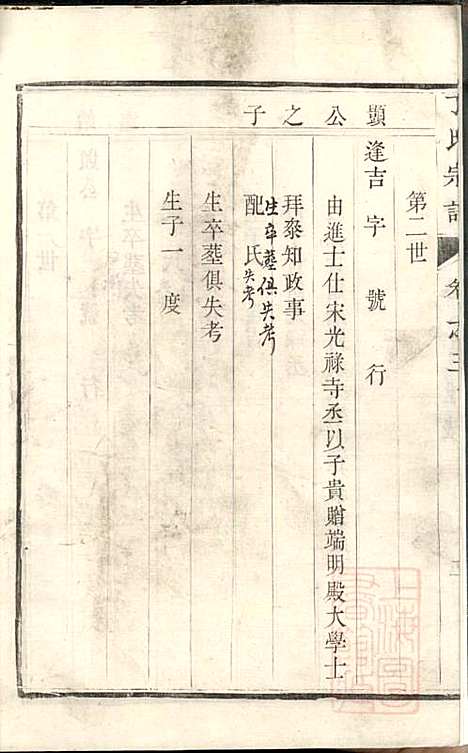 丁氏宗譜
卷之三
第二世
顯公之子
逢吉 字 號 行
由進士仕宋光祿寺丞以子貴贈端明殿大學士
拜叅知政事
生卒墓俱失考
配 氏失考
生卒墓俱失考
生子一 度